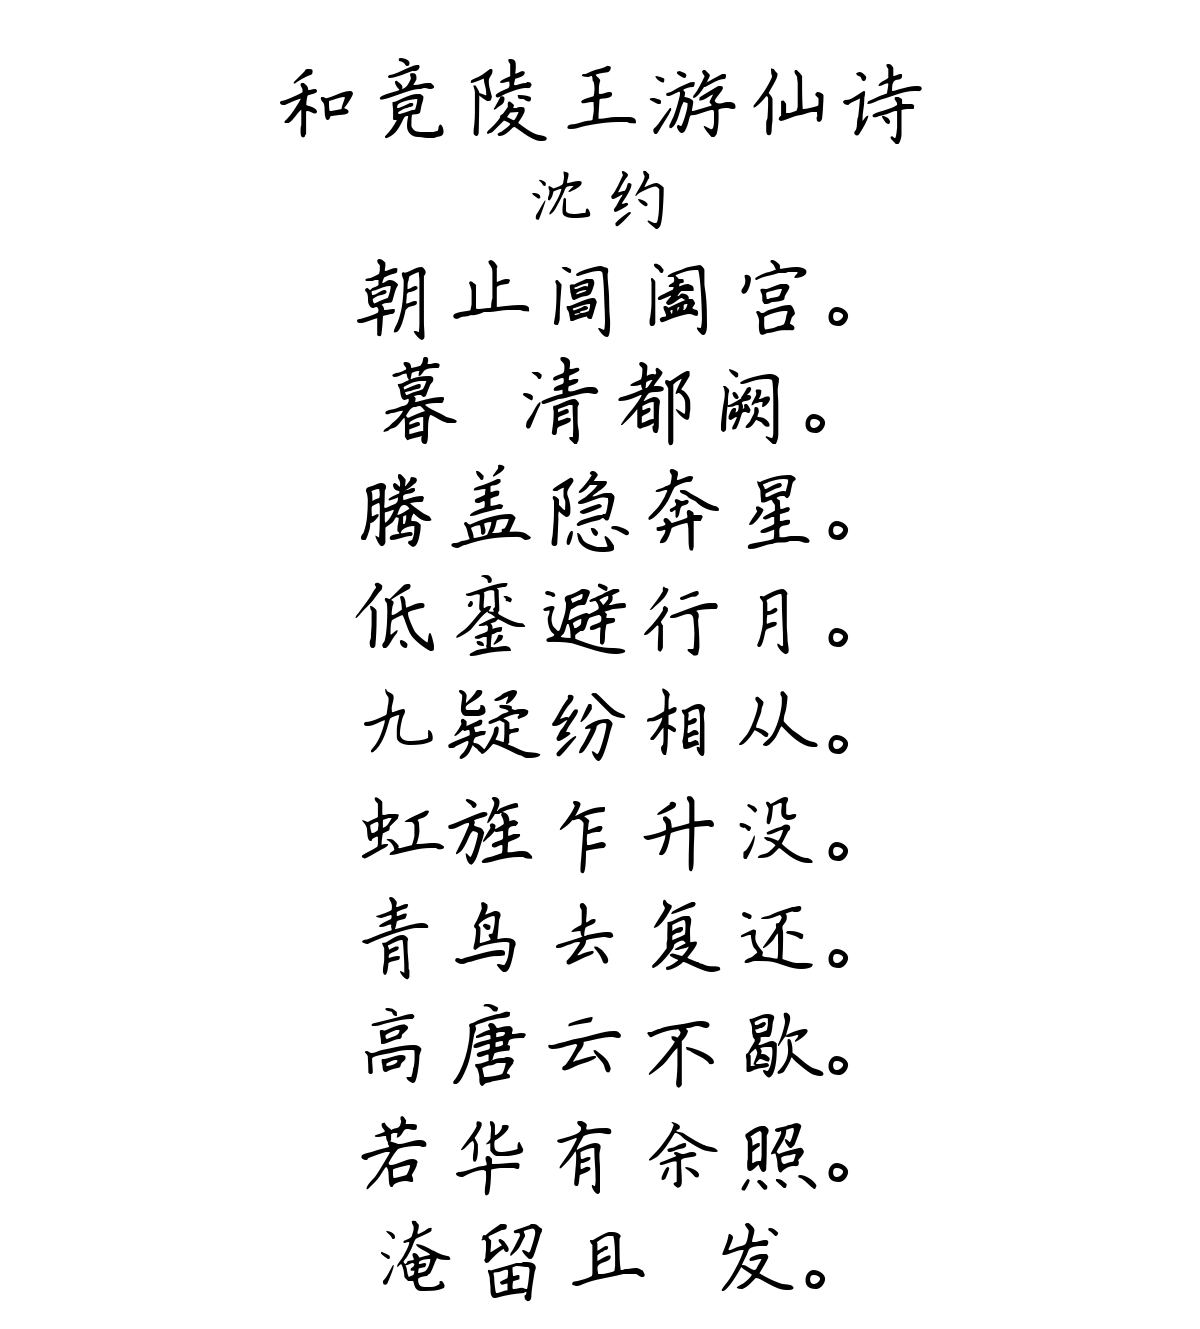 和竟陵王游仙诗
沈约
朝止阊阖宫。
暮 清都阙。
腾盖隐奔星。
低銮避行月。
九疑纷相从。
虹旌乍升没。
青鸟去复还。
高唐云不歇。
若华有余照。
淹留且 发。